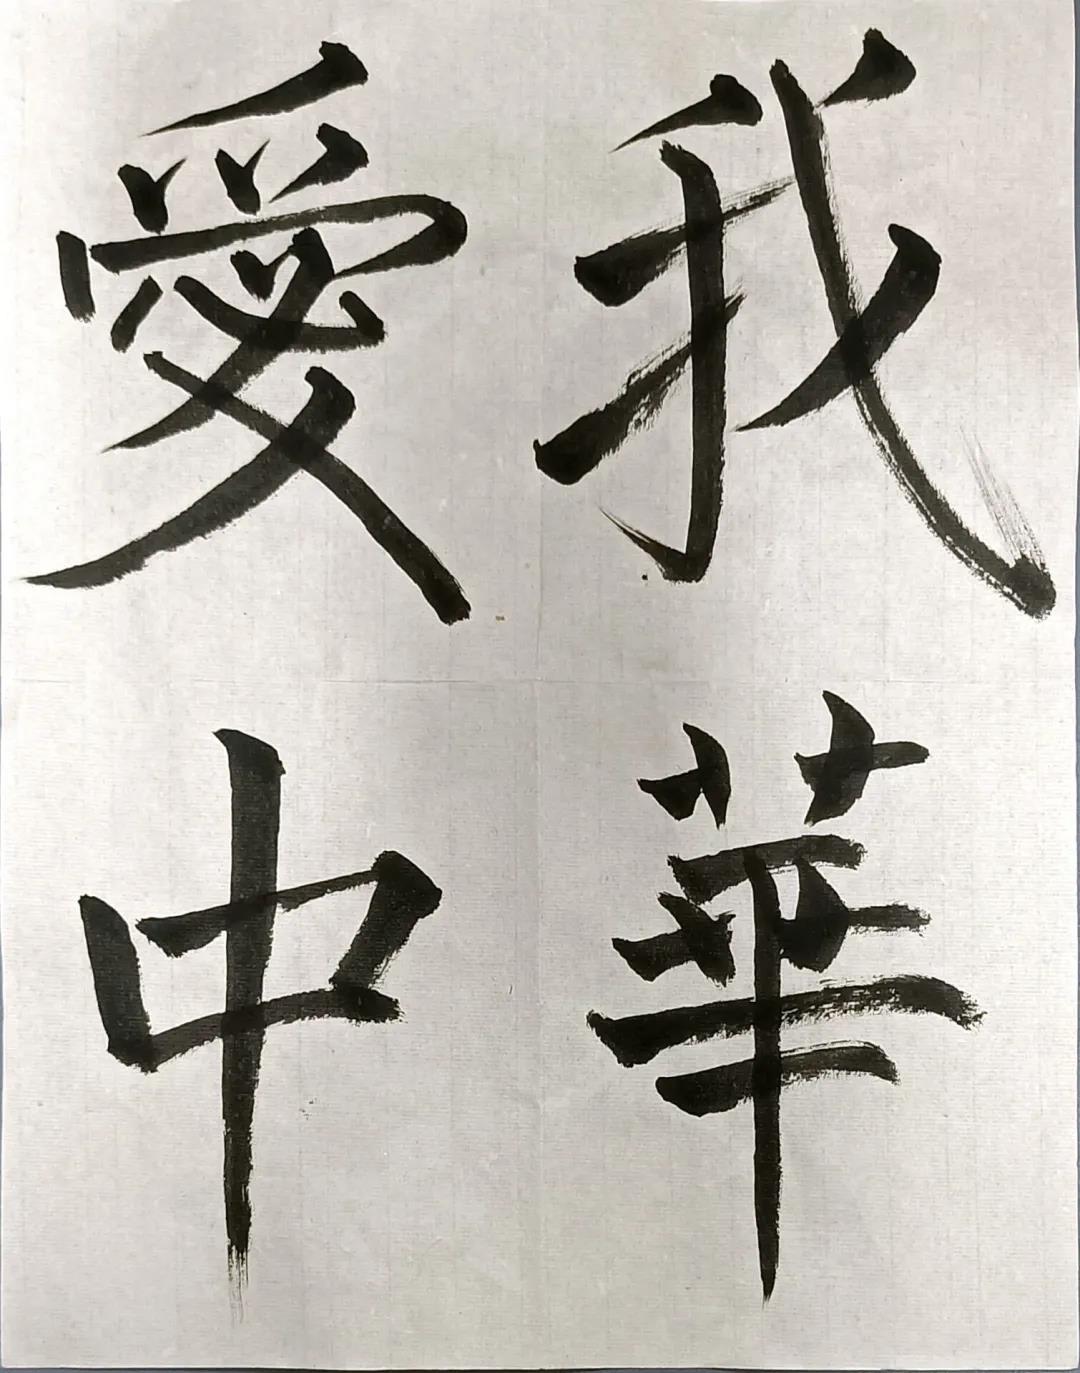 我愛
中華